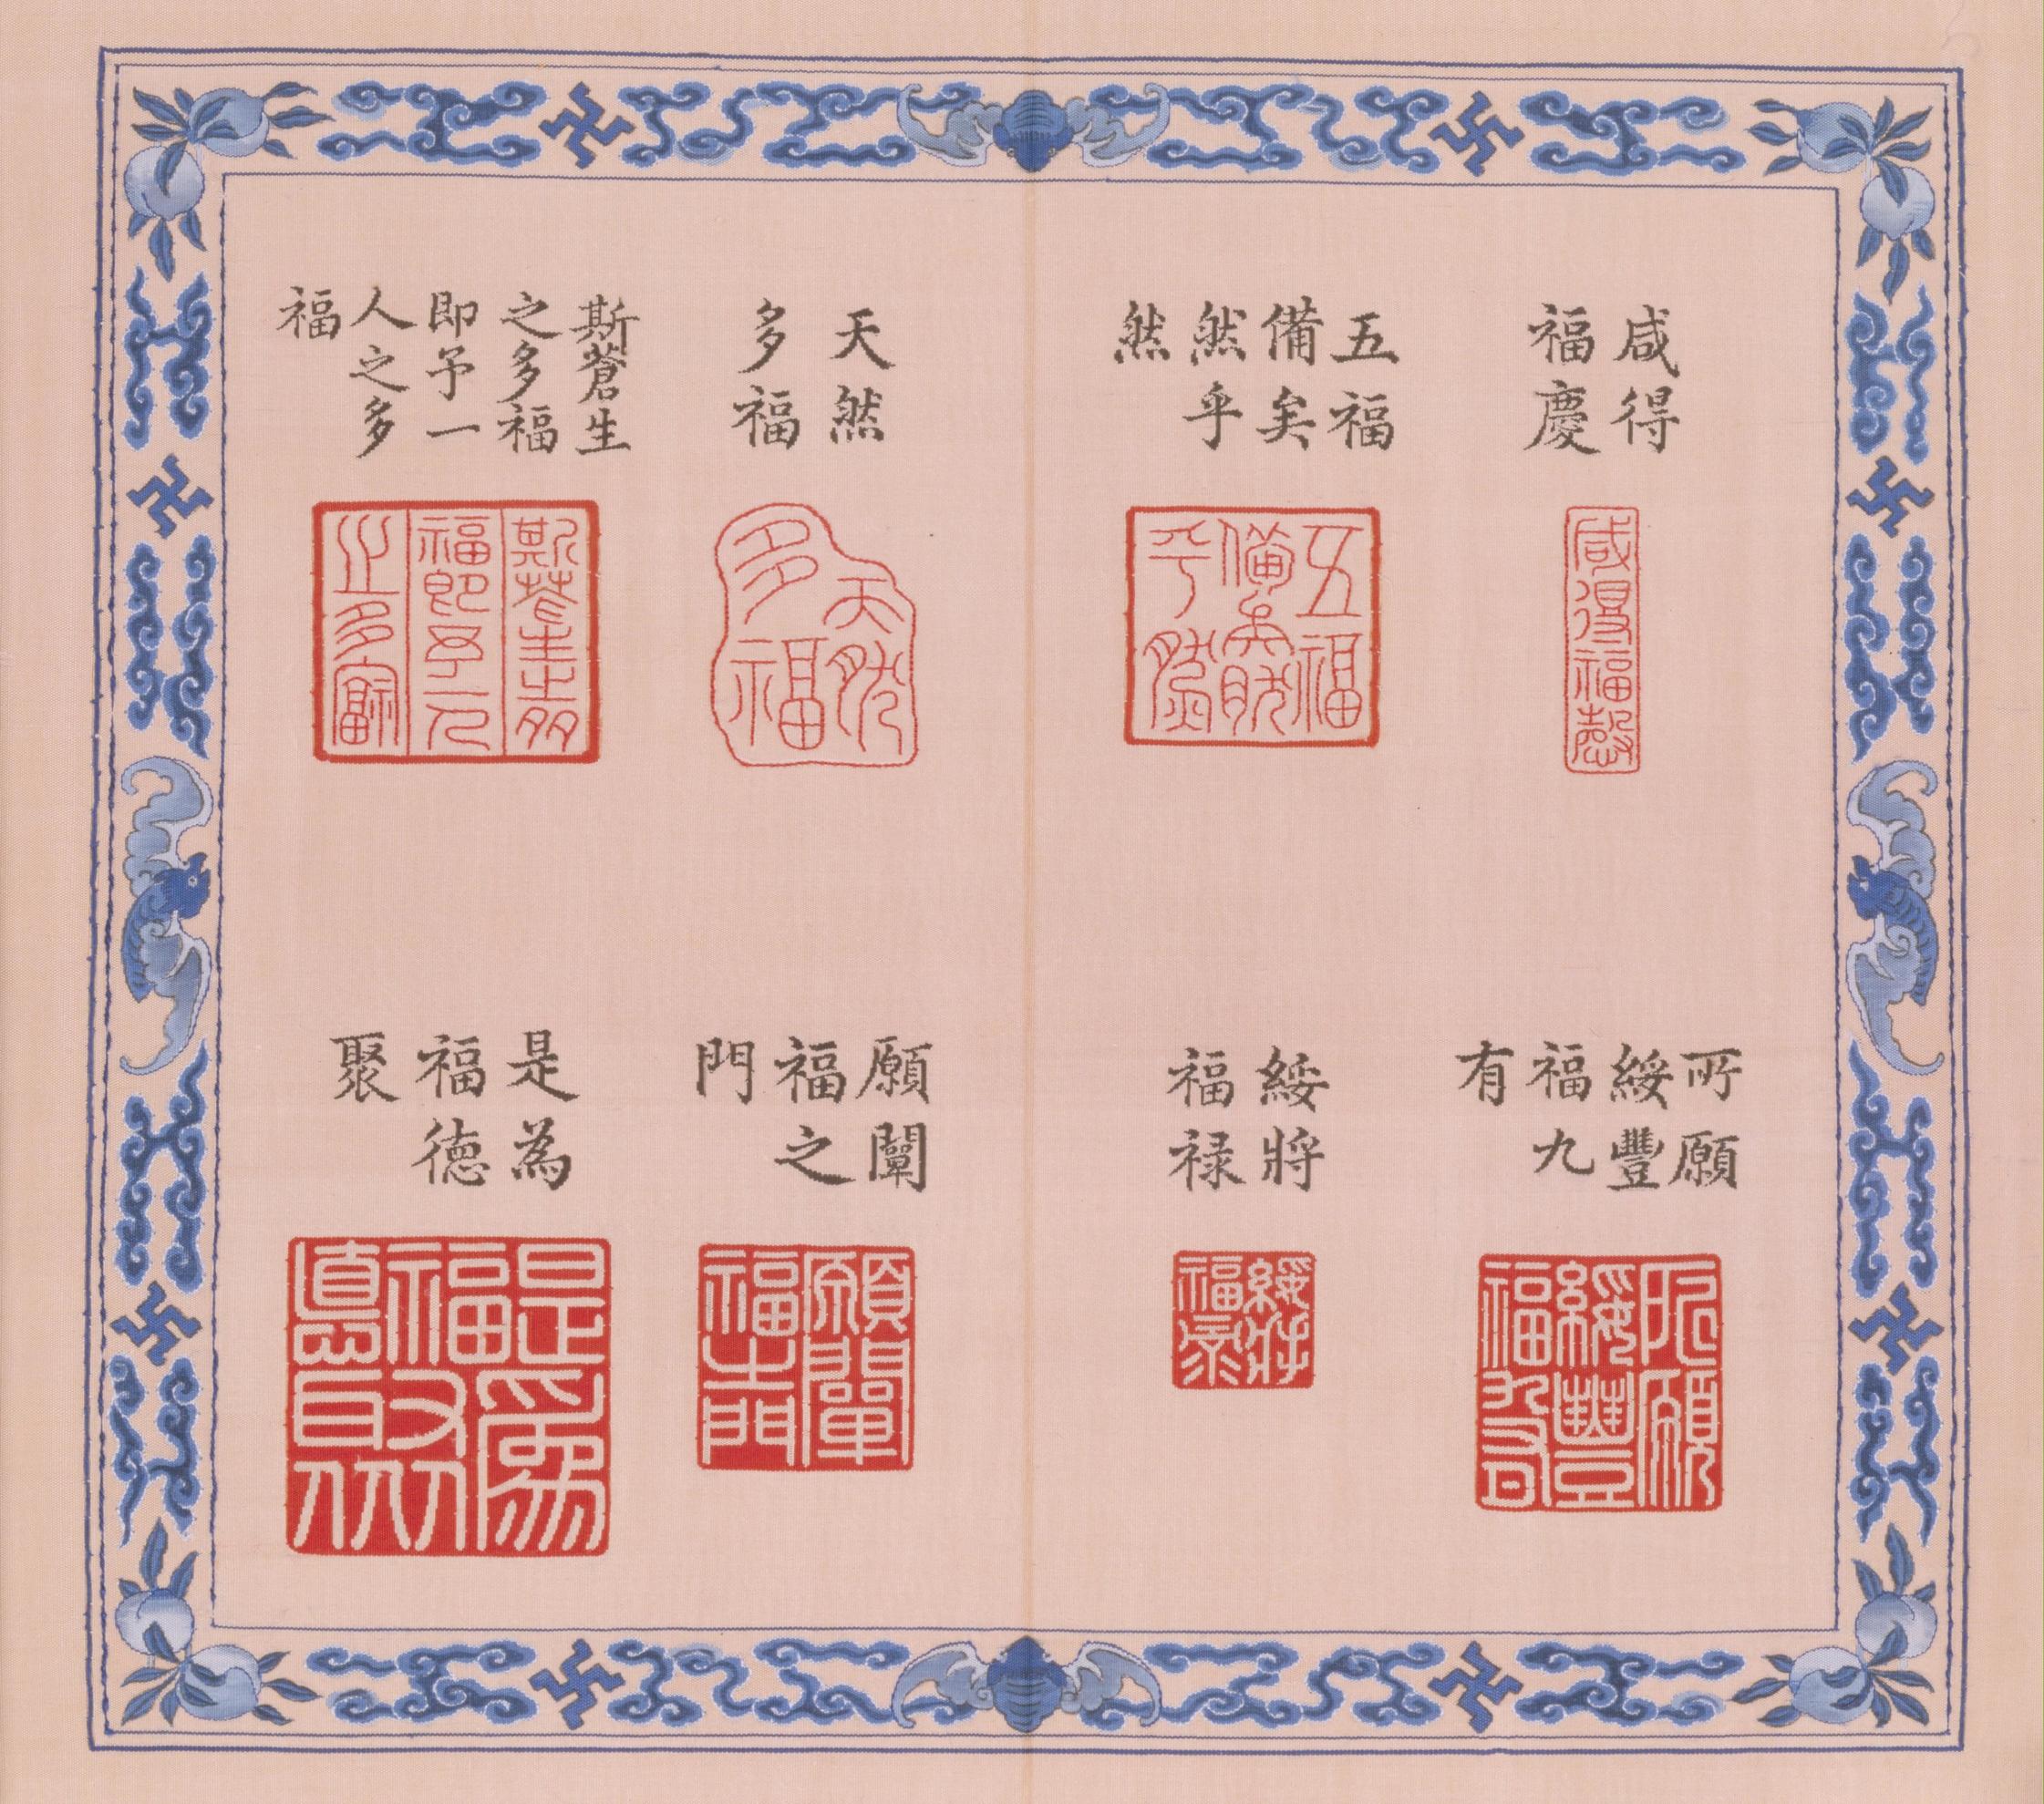 咸得
福慶
五福
備矣
然乎
然
天然
多福
斯蒼生
之多福
即予一
人之多
福
咸得福慶
五福
備矣然
乎然
天然
多福
斯蒼生之多
福即予一人
之多福
所願
綏豐
福九
有
綏將
福禄
願闡
福之
門
是為
福德
聚
所願
綏豐
福九有
綏將
福祿
願闡
福之門
是為
福聚
德